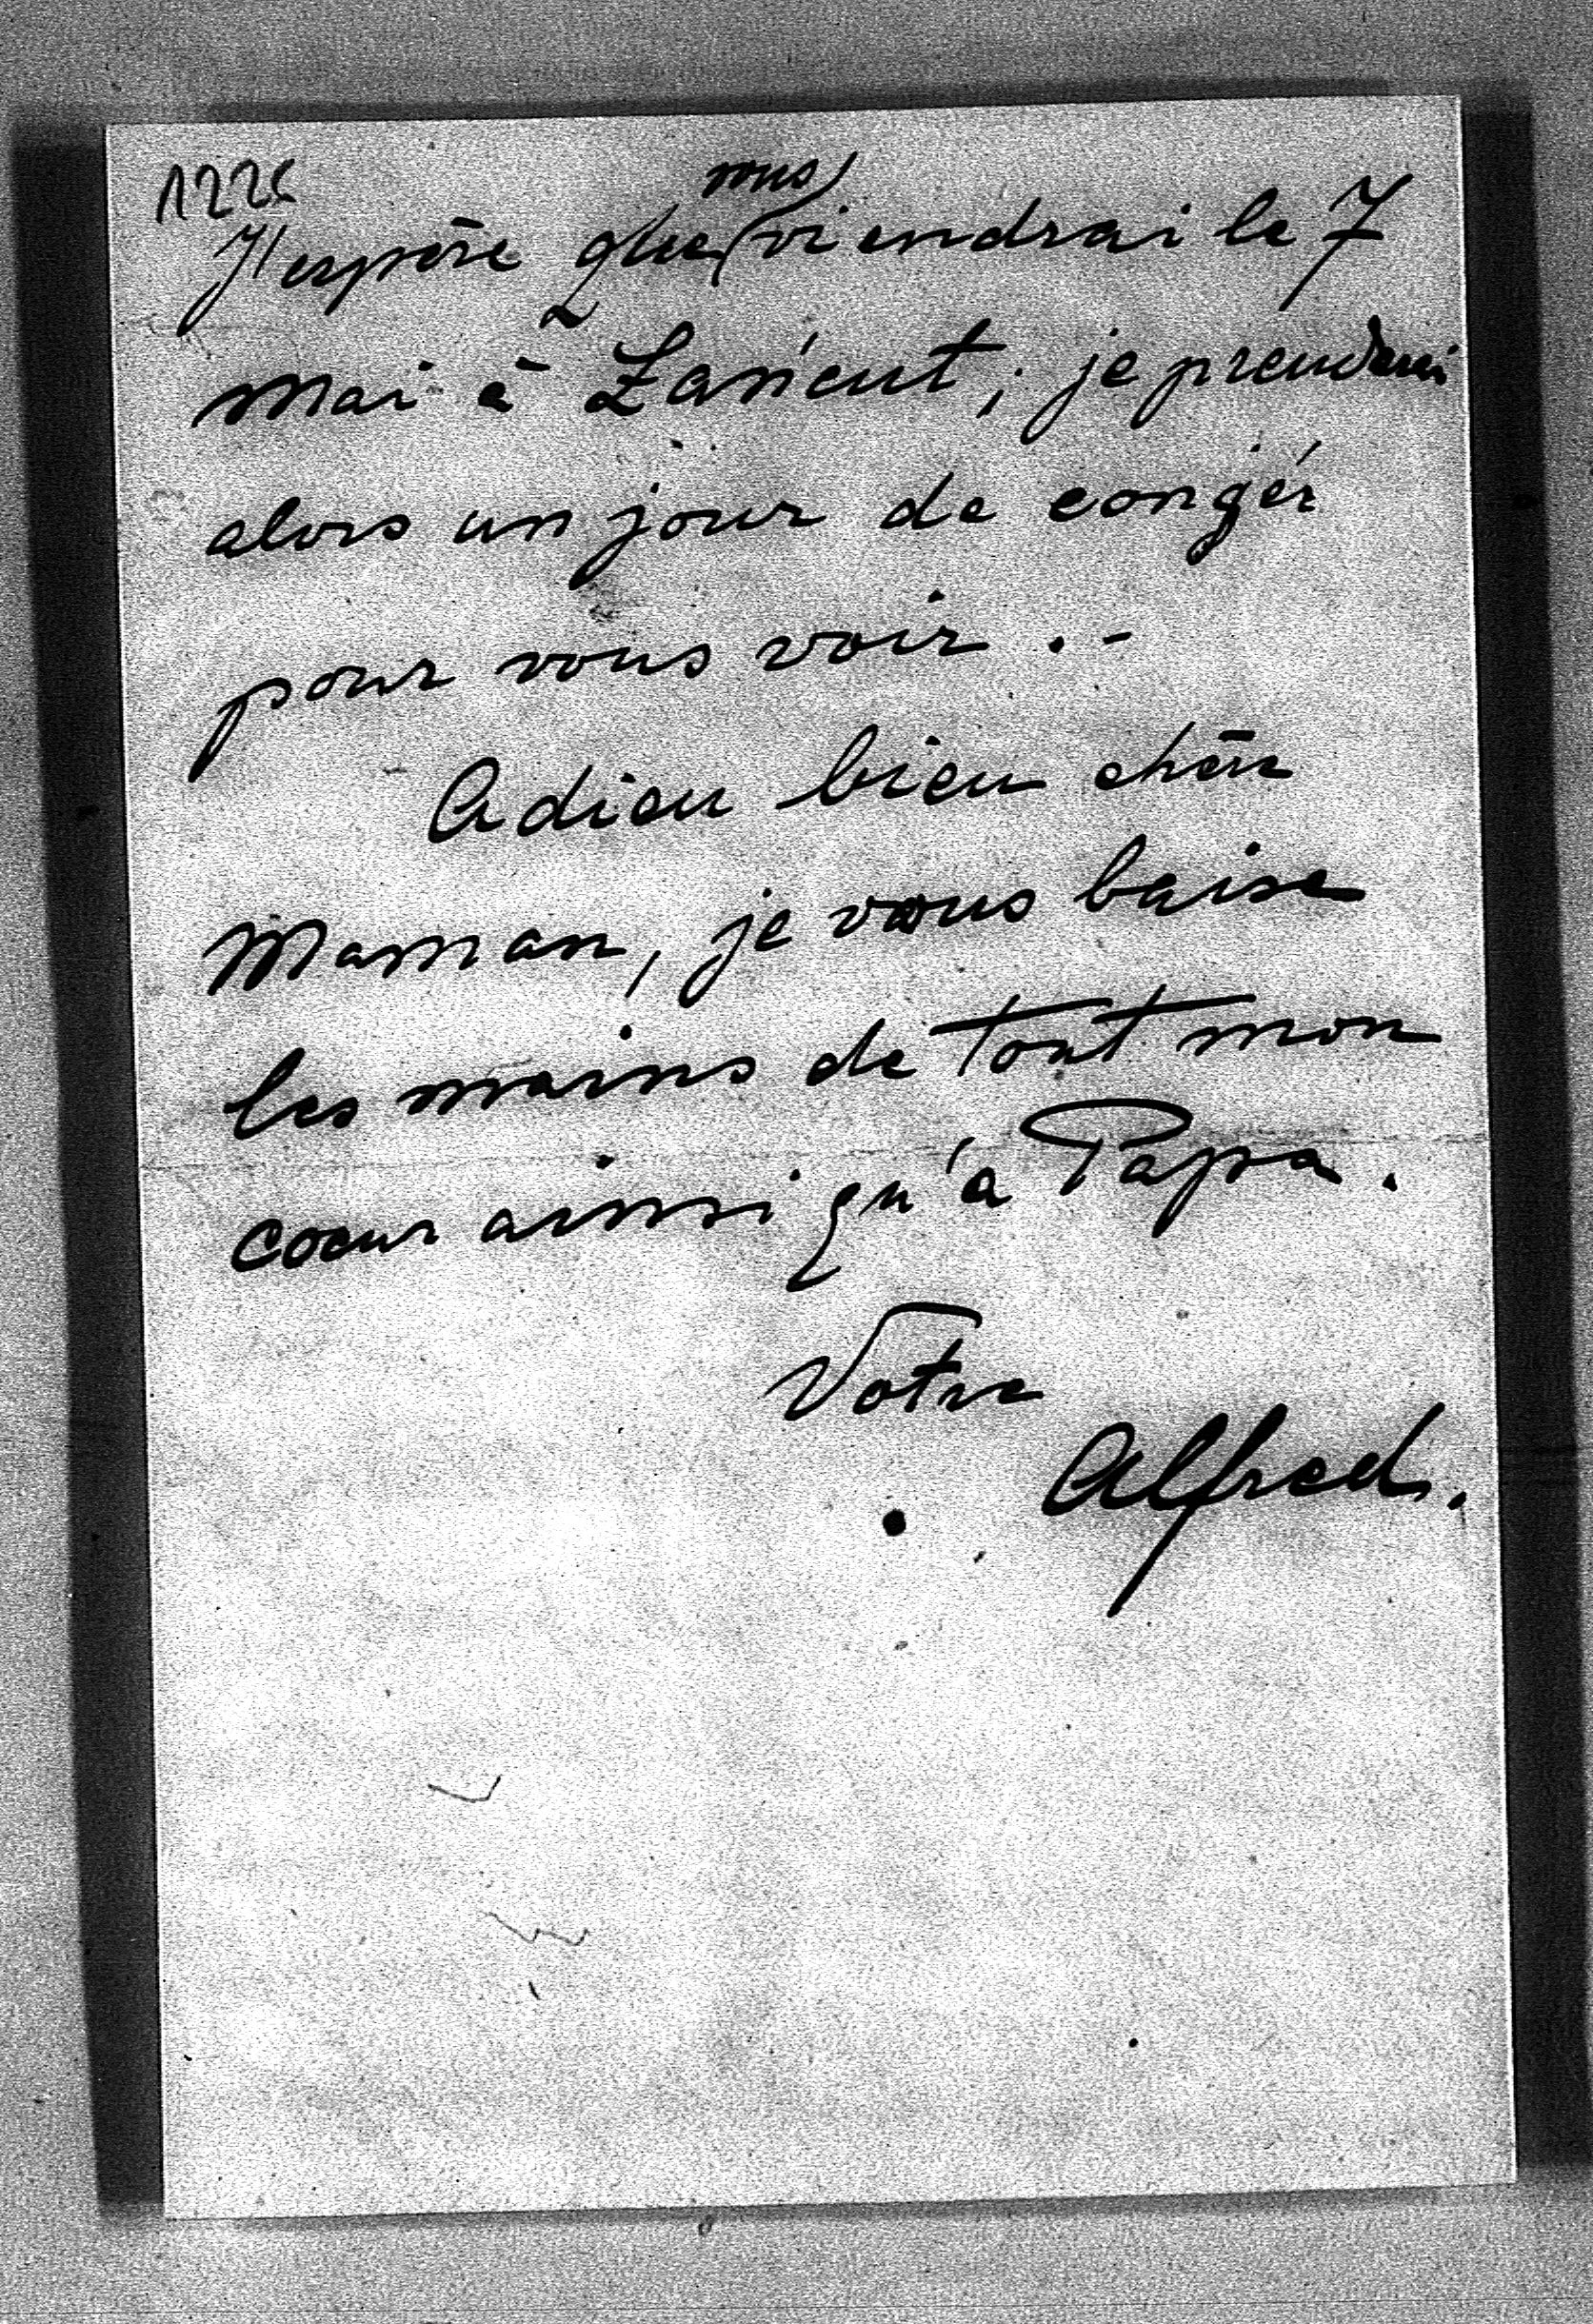 1226
J'espère que vous viendrai le 7
mai à Łańcut ; je prenderai
alors un jour de congér
pour vous voir . -
Adieu bien chère
Maman, je vous baise
les mains de tout mon
coeur ainsi qu'à Papa .
Votre
Alfred .